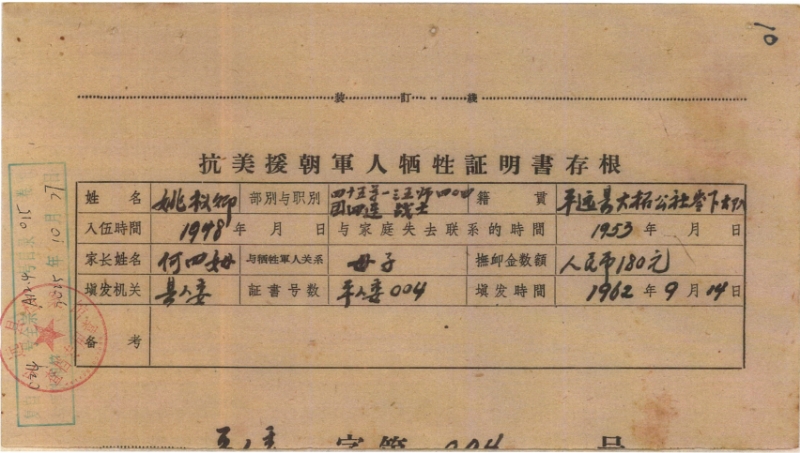 10
装 訂 綫
抗美援朝軍人牺牲証明書存根
姓 名 姚叔卿 部別与职別 四十五军一三五师四〇四团四连 战士 籍 貫 平远县大柘公社
入伍時間 1948 年 月 日 与家庭失去联系的時間 1953 年 月 日
家长姓名 何四妹 与牺牲軍人关系 母子 撫卹金数額 人民币180元
填发机关 县人委 証書号数 平人委004 填发時間 1962 年 9 月 14 日
备 考
字第 004 号
015
2025 年 10 月 27